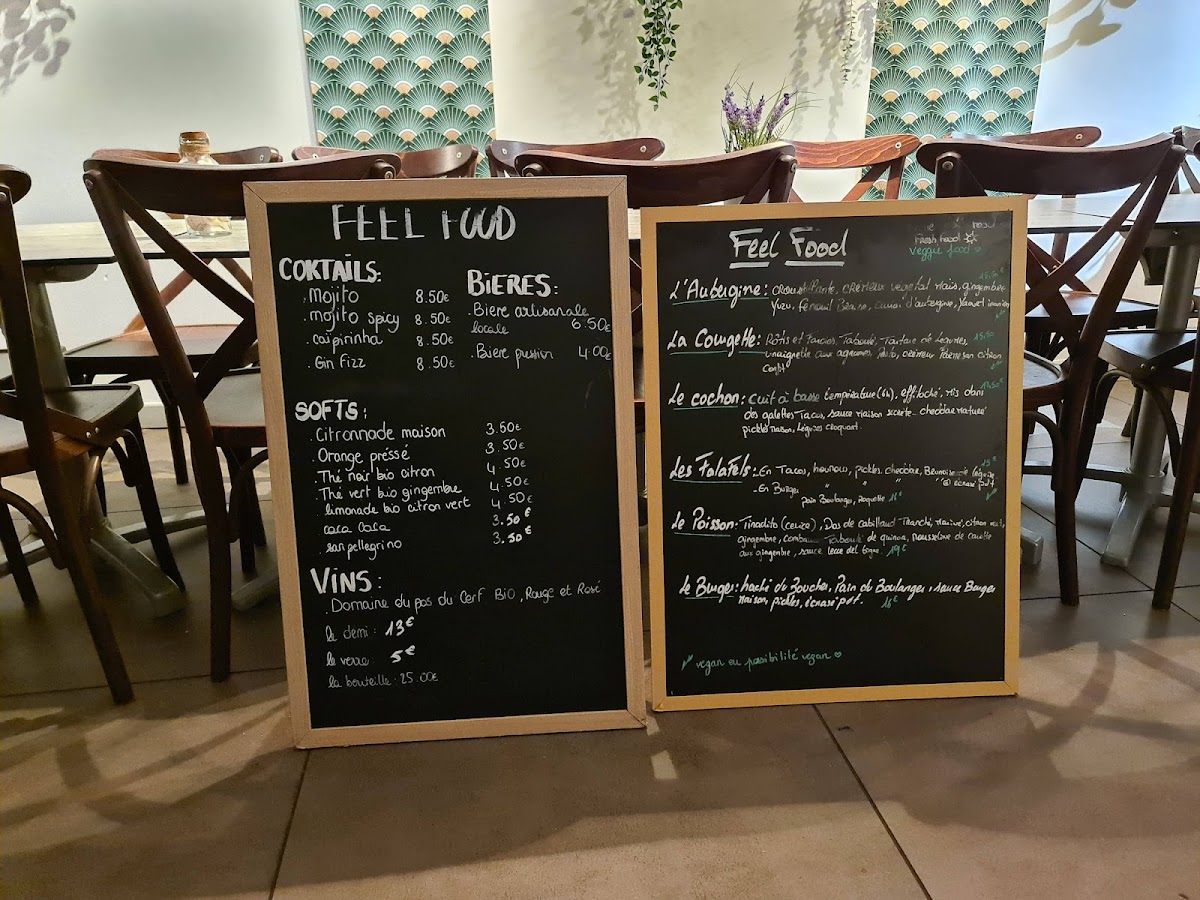 FEEL FOOD
COKTAILS:
.Mojito 8.50€
.mojito spicy 8.50€
.caïpirinha 8.50€
.Gin Fizz 8.50€
BIERES:
.Biere artisanale
locale 6.50€
.Bière pression 4.00€
SOFTS:
.Citronnade maison 3.50€
.Orange pressé 3.50€
.Thé noir bio citron 4.50€
.Thé vert bio gingembre 4.50€
.limonade bio citron vert 4.50€
coca Cola 3.50€
.san pellegrino 3.50€
VINS:
.Domaine du pas du Cerf BIO, Rouge et Rosé
le demi: 13€
le verre 5€
la bouteille: 25.00€
Feel Food
Fresh food
veggie food
L'Aubergine: croustillante, crémeux végétal maïs, gingembre
Yuzu, Fenouil
15,50€
La Courgette: Rôtis et Farcies, Taboulé, Tartare de légumes
vinaigrette aux agrumes, crémeux citron
Confit
15,50
Le cochon: cuit à basse température (6h), effiloché, Mis dans
des galettes Tacos, sauce maison secrète, cheddar maturé
pickles maison, légumes croquant.
17,50€
Les Falafels: - En Tacos, houmous, pickles, cheddar,
15€
- En Burger, " " "
Pain Boulanger, Roquette 16€
Le Poisson: Tiradito (ceviché), Dos de cabillaud Tranché, Mariné, citron
gingembre, Taboulé de quinoa, mousseline de carotte
aux gingembre, sauce leche del tigre. 19€
Le Burger: haché du Boucher, Pain du Boulanger, sauce Burger
Maison, pickles, écrasé pdt. 16€
vegan ou possibilité vegan